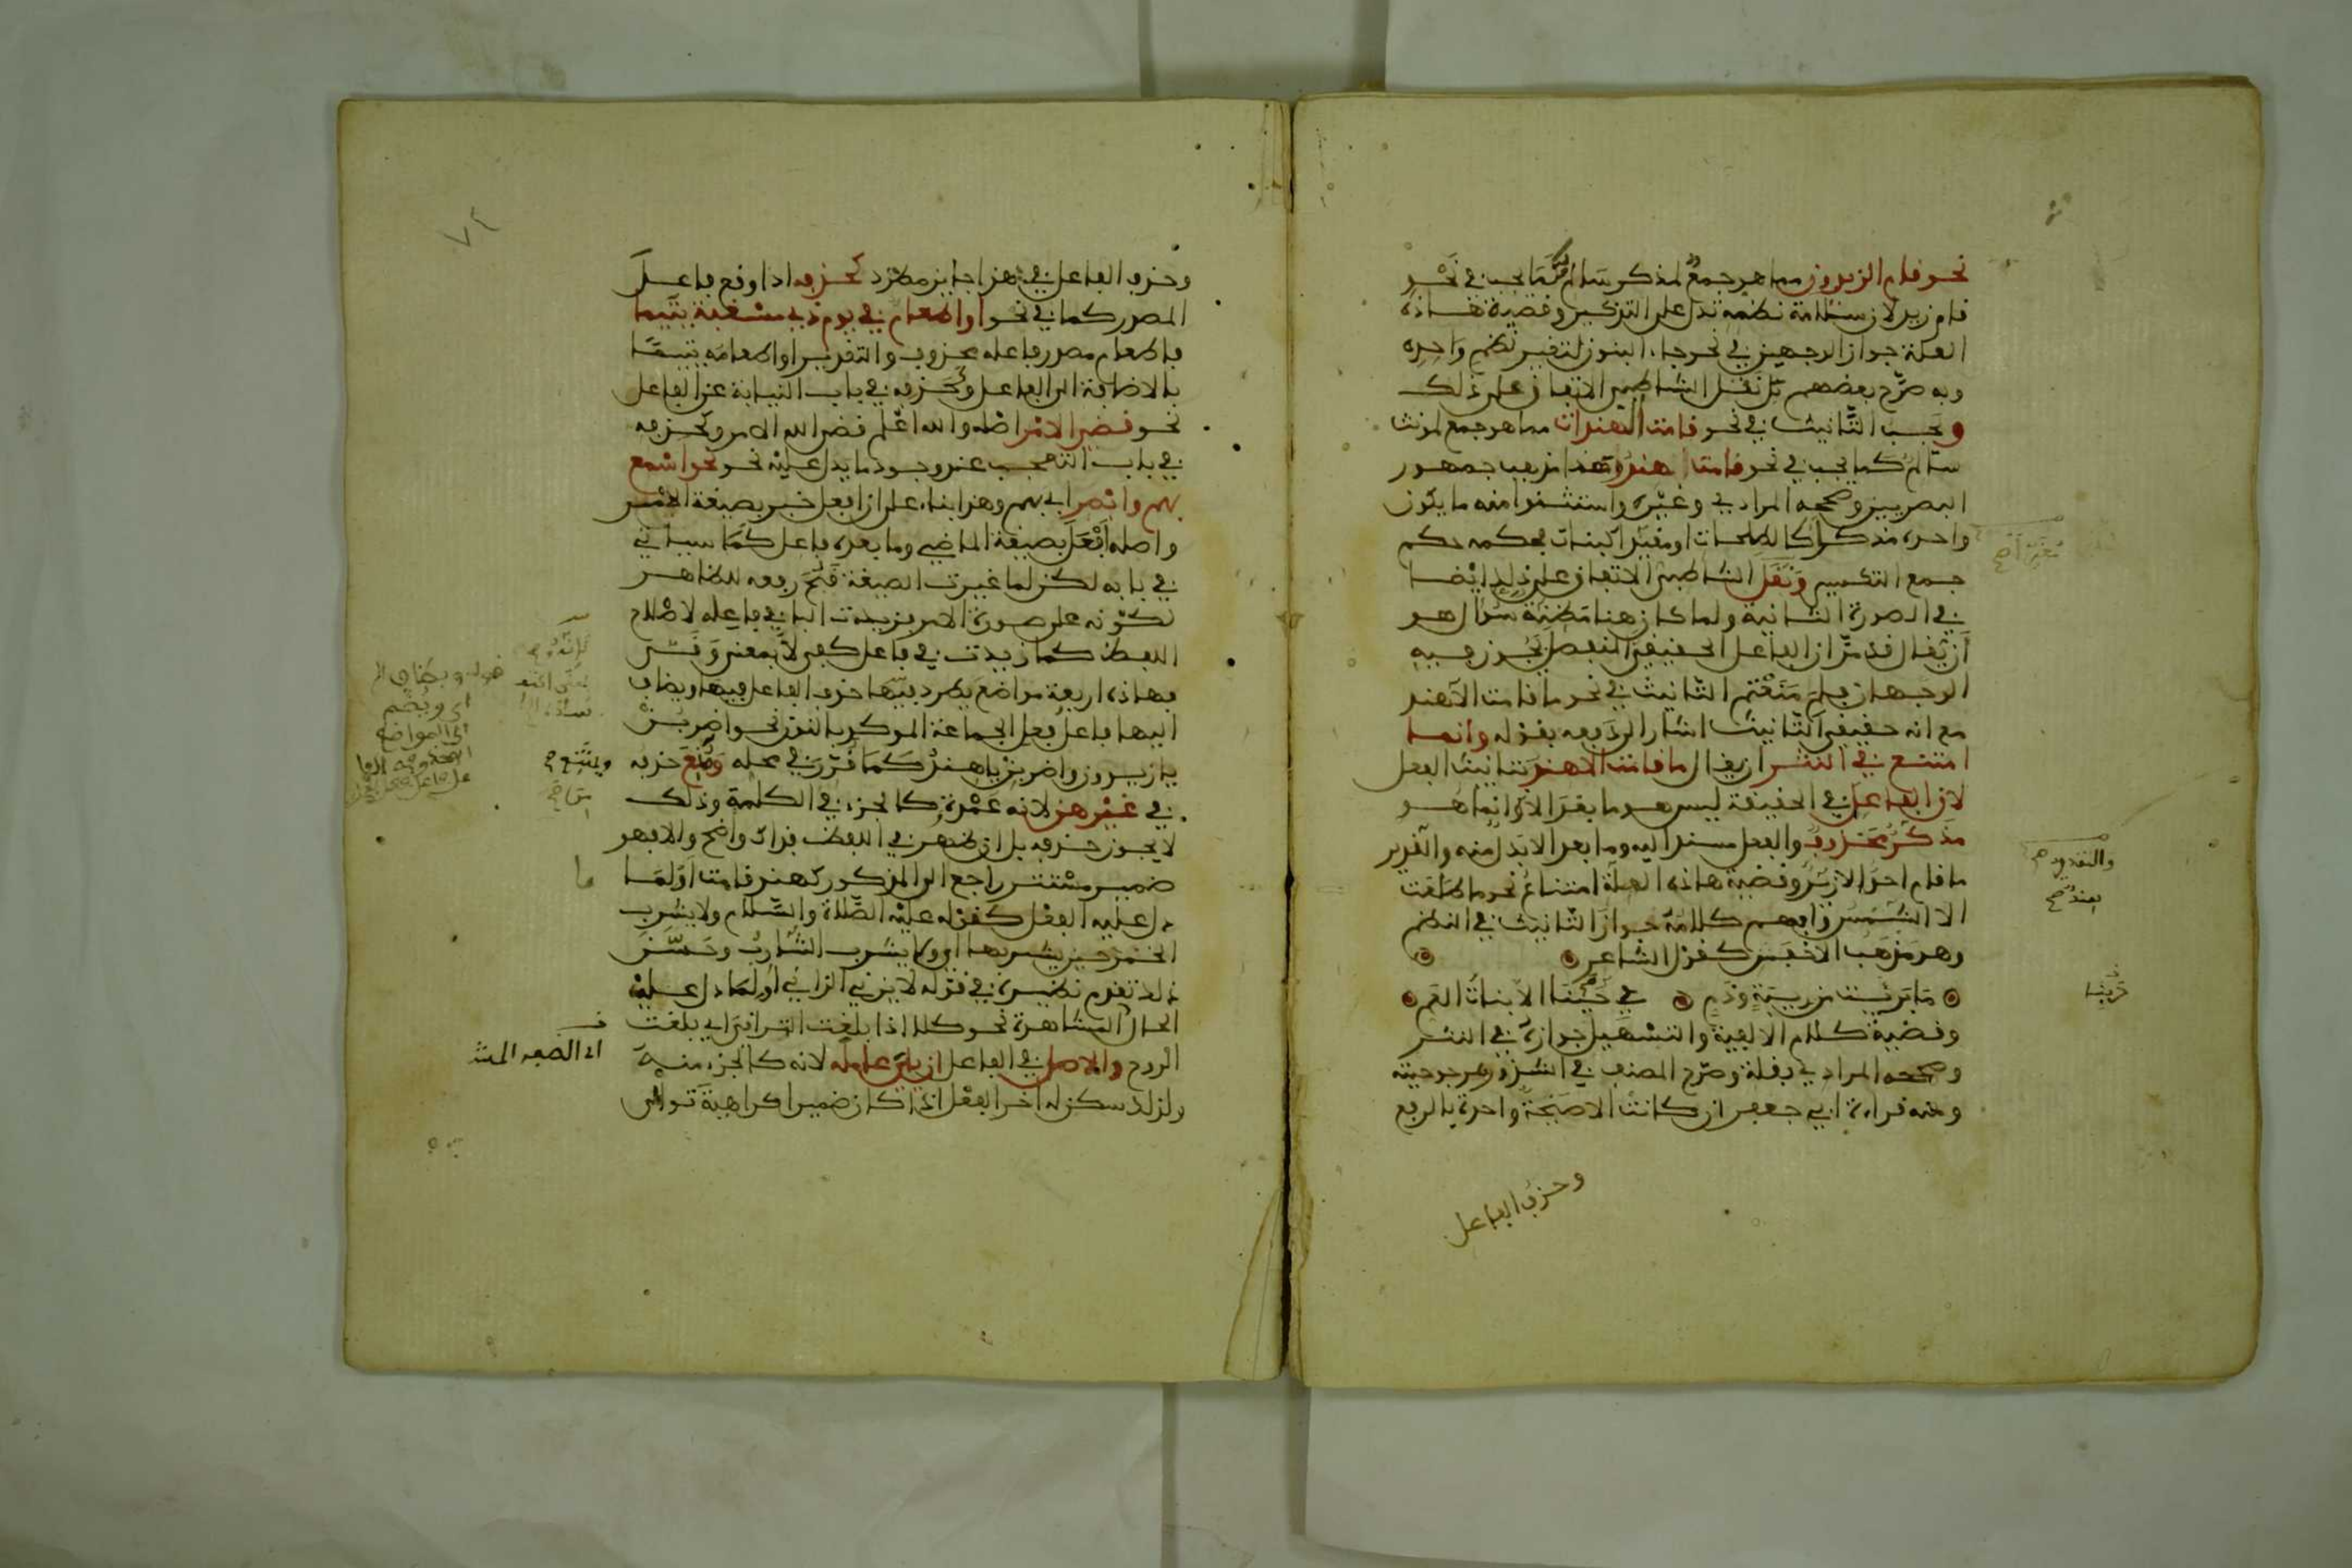 نحو قام الزيدون مما هو جمع لمذكر سالم كما يجب في نحو
قام زيد لان سلامة نظمه تدل على التذكير وقضية هذه
العلة جواز الوجهين في نحو جاء البنون لتغير نظم واحده
وبه صرح بعضهم بل نقل الشاطبي الاتفاق على ذلك
ويجب التانيث في نحو قامت الهندات مما هو جمع لمونث
سالم كما يجب في نحو قامت هند وهذا مذهب جمهور
البصريين وصححه المرادي وغيره واستثنوا منه ما يكون
واحده مذكرا كالطلحات او مغيرا كبنات فحكمه حكم
جمع التكسير ونقل الشاطبي الاتفاق على ذلك ايضا
في الصورة الثانية ولما كان هنا مظنة سوال هو
ان يقال قد مر ان الفاعل الحقيقي المنفصل يجوز فيه
الوجهان فلم منعتم التانيث في نحو ما قامت الا هند
مع انه حقيقي التانيث اشار الى دفعه بقوله وانما
امتنع في النثر ان يقال ما قامت الا هند بتانيث الفعل
لان الفاعل في الحقيقة ليس هو ما بعد الا وانما هو
مذكر محذوف والفعل مسند اليه وما بعد الا بدل منه والتقدير
ما قام احد الا زيد وقضية هاذه العلة امتناع نحو ما طلعت
الا الشمس وافهم كلامه جواز التانيث في النظم
وهو مذهب الاخفش كقول الشاعر
ما برئت من ريبة وذم في حربنا الا بنات العم
وقضية كلام الالفية والتسهيل جوازه في النثر
وصححه المرادي بقلة وصرح المصنف في الشذور بمرجوحيته
ومنه قراءة ابي جعفر ان كانت الا صيحة واحدة بالرفع
وحذف الفاعل
والتقدير
بعد صح
حربنا
٧٤
وحذف الفاعل في هذا جايز مطرد كحذفه اذا وقع فاعل
المصدر كما في نحو او اطعام في يوم ذي مسغبة يتيما
فاطعام مصدر فاعله محذوف والتقدير او اطعامه يتيما
بالاضافة الى الفاعل وكحذفه في باب النيابة عن الفاعل
نحو قضي الامر اصله والله اعلم قضى الله الامر وكحذفه
في باب التعجب عند وجود ما يدل عليه نحو نحو اسمع
بهم وابصر اي بهم وهذا بناء على ان افعل خبر بصيغة الامر
واصله افعل بصيغة الماضي وما بعده فاعل كما سياتي
في بابه لكن لما غيرت الصيغة قبح رفعه للظاهر
لكونه على صورة الامر فزيدت الباء في فاعله لاصلاح
اللفظ كما زيدت في فاعل كفى لا بمعنى وقى
فهاذه اربعة مواضع يطرد فيها حذف الفاعل فيها ويضاف
اليها فاعل فعل الجماعة الموكد بالنون نحو اضربن
يا زيدون واضربن يا هند كما قرر في محله ومنع حذفه
في غير هذه لانه عمدة كالجزء في الكلمة وذلك
لا يجوز حذفه بل ان ظهر في اللفظ فذاك واضح والا فهو
ضمير مستتر راجع الى المذكور كهند قامت او لما
دل عليه الفعل كقوله عليه الصلاة والسلام ولا يشرب
الخمر حين يشربها اي ولا يشرب الشارب وحسن
ذلك تقدم نظيره في قوله لا يزني الزاني او لما دل عليه
الحال المشاهدة نحو كلا اذا بلغت التراقي اي بلغت
الروح والاصل في الفاعل ان يلي عامله لانه كالجزء منه
ولذلك سكن له اخر الفعل اذا كان ضميرا كراهية توالي
قوله ويضاف ال
اي ويضم
الى المواضع
ويمتنع
ما